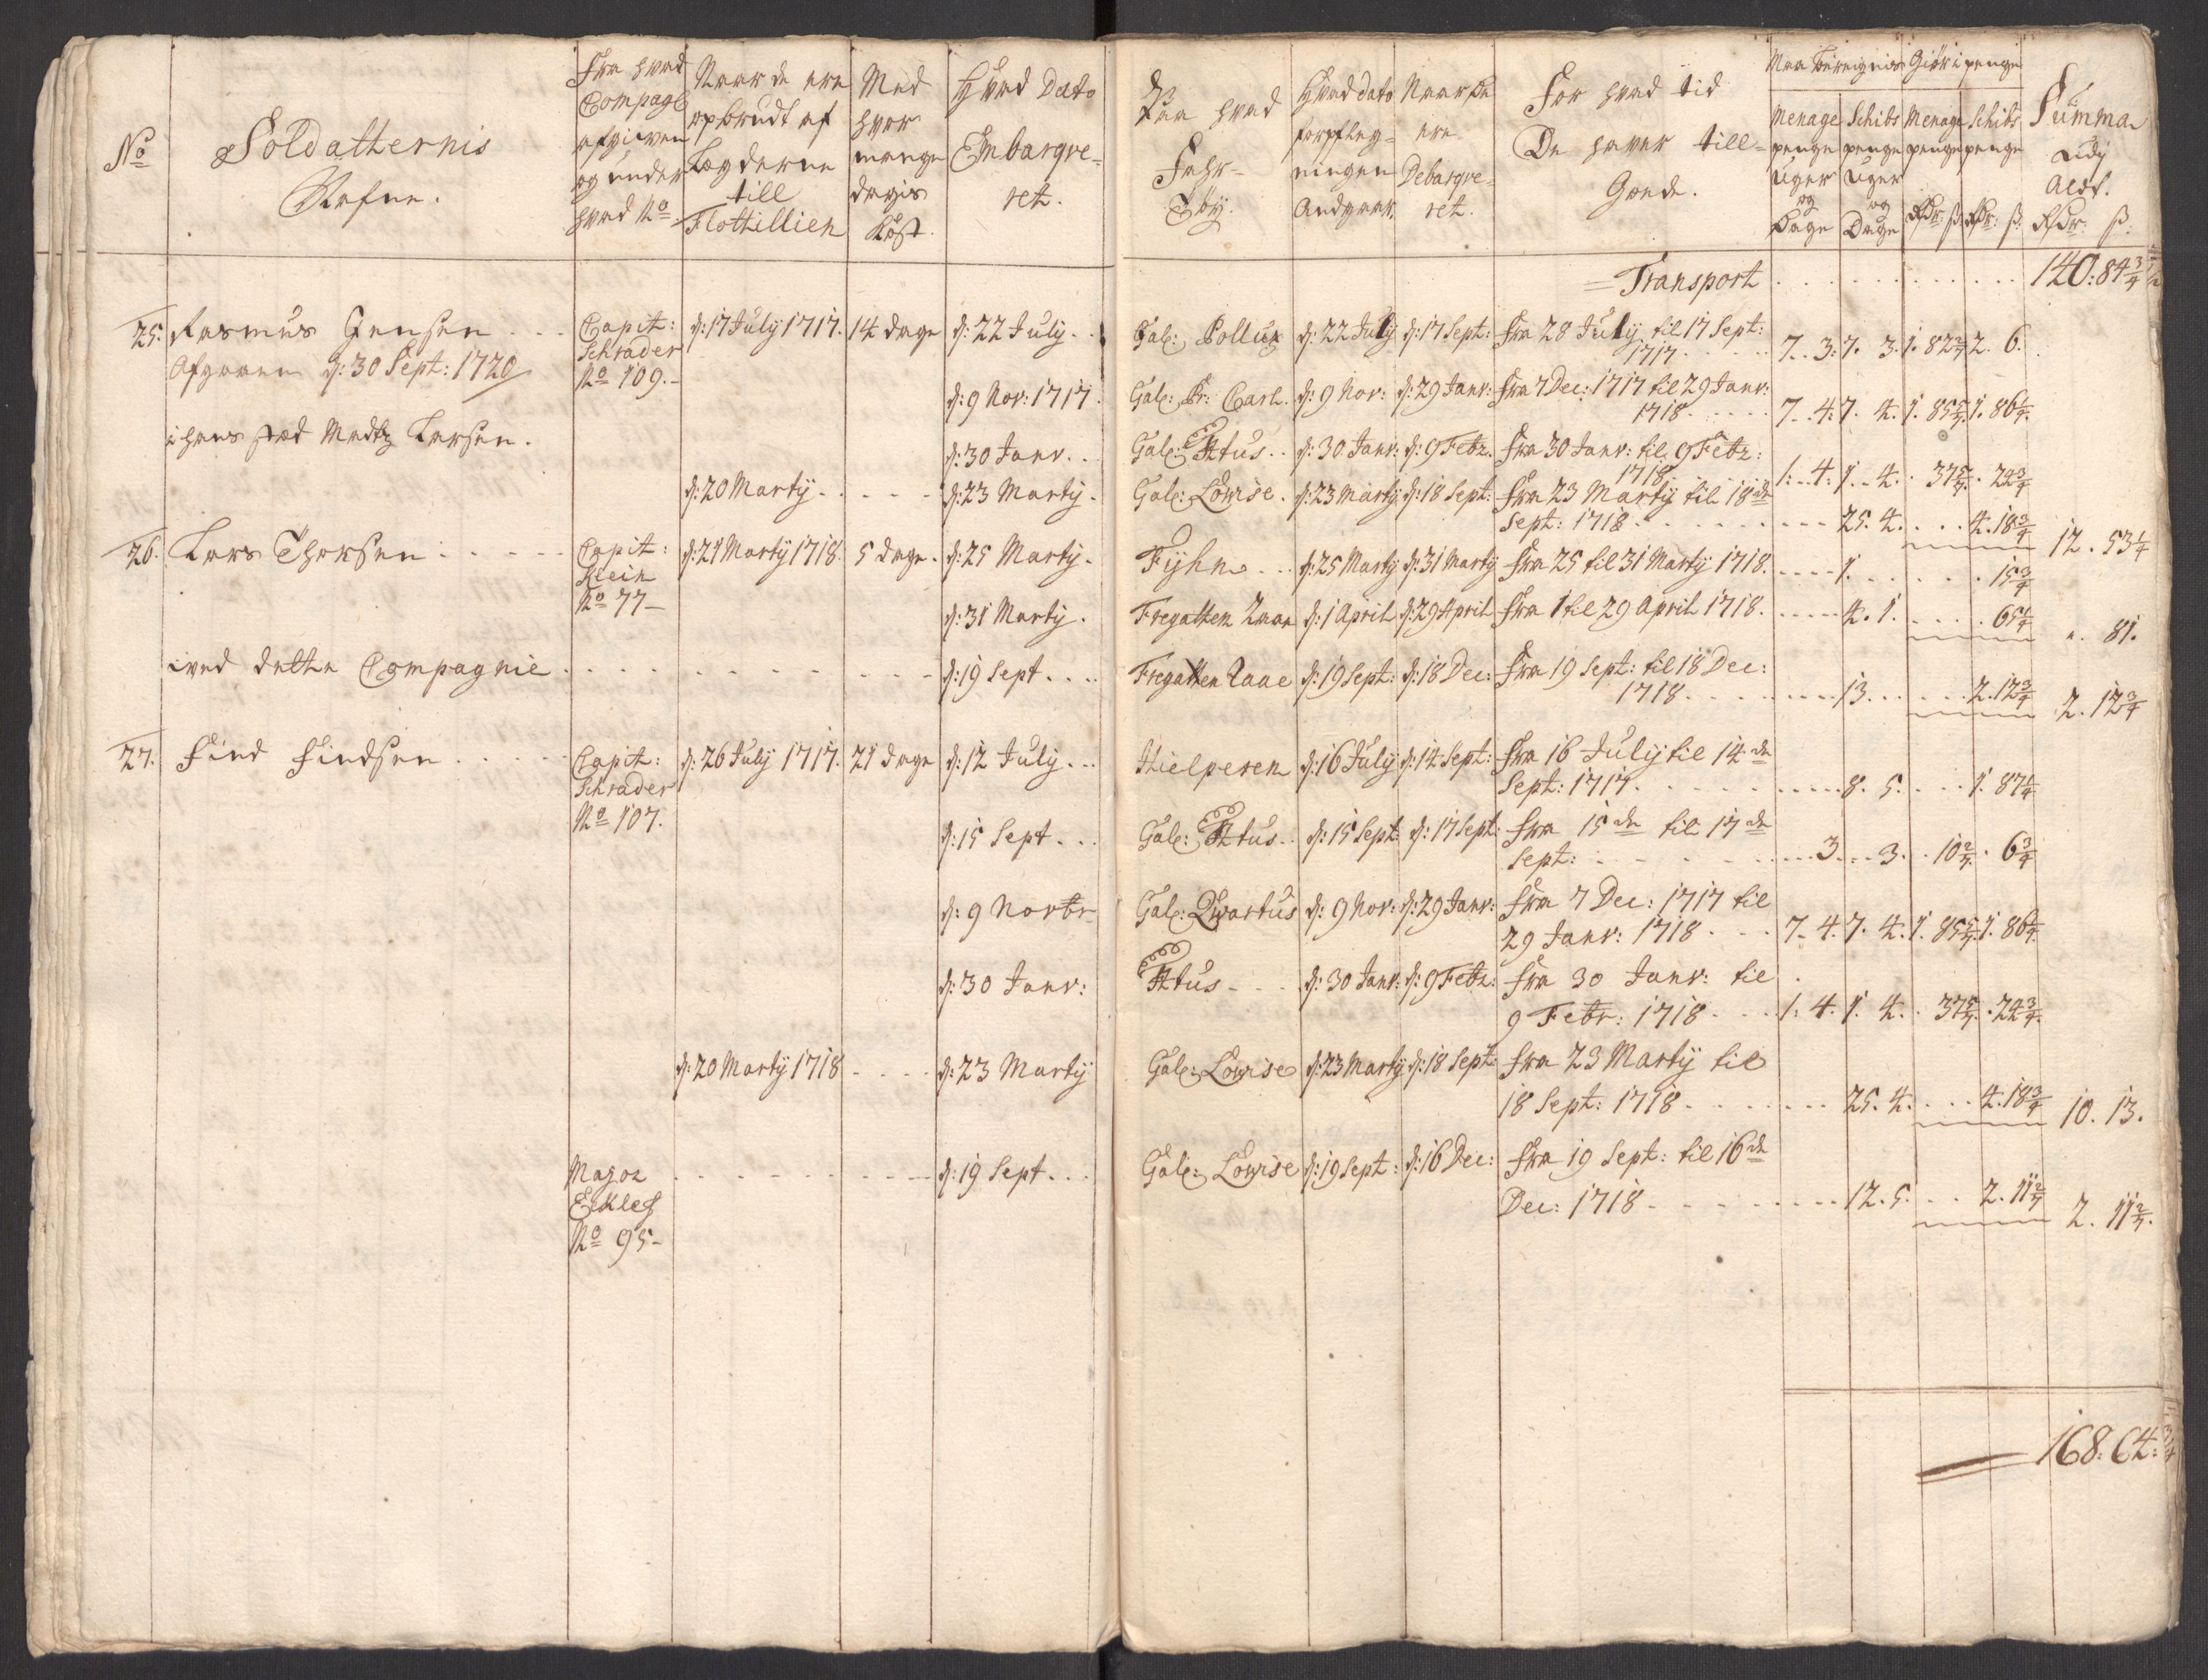 No
Soldatternis
Nafne.
Fra hvad
Compagi
afgiven
og under
hvad No
Naar de ere
opbrudt af
Lægderne
till
Flottillien
Med
hvor
mange
dagis
Kost.
Hvad Dato
Embarqve-
ret.
Paa hvad
Fahr-
Tøy.
Hvad dato
forpfleg-
ningen
Andgaar.
Naar de
ere
Debarqve-
ret.
For hvad tid
De haver till-
Gode.
Maa bereignis Giør i penge
Menage
penge
Uger
og
Dage
Schibs
penge
Uger
og
Dage
Menage
penge
Rdr: ß
Schibs
penge
Rdr: ß:
Summa
udj
Alds.
Rdr: ß:
Transport . . . . . . . . . . 140: 84 3/4
25. Rasmus Jensen . . . Capit: d: 17 July 1717. 14 dage d: 22 July . . Gal: Pollux d: 22 July d: 17 Sept: fra 28 July til 17 Sept:
Afgaaen d: 30 Sept: 1720 Schrader 1717 . . . . 7. 3. 7. 3. 1. 82 3/7 2. 6.
No 109.-
d: 9 Nov: 1717. Gal: Pr: Carl. d: 9 Nov: d: 29 Janv: fra 7 Dec: 1717 til 29 Janv:
1718 . . . . . 7. 4. 7. 4. 1. 85 5/7. 1. 86 1/4.
i hans stæd Madtz Larsen.
d: 30 Janv. . . Gal: Átus . . d: 30 Janv: d: 9 Febr. fra 30 Janv: til 9 Febr:
1718 1. 4. 1. 4. . 37 5/7. . 24 3/4
d: 20 Martÿ - . . - - d: 23 Martÿ. Gal: Lowise. d: 23 Martÿ d: 18 Sept: fra 23 Martÿ til 18de
Sept: 1718 . . . . . . . 25. 4. . . . 4. 18 3/4 12. 53 1/4
26. Lars Thorsen . . . . . Capit: d: 21 Martÿ 1718. 5 dage. d: 25 Martÿ. Fÿhn . . . d: 25 Martÿ d: 31 Martÿ fra 25 til 31 Martÿ 1718. . . . . 1. . . . . . . 15 3/4
Klein
No 77 -
d: 31 Martÿ. Fregatten Raae d: 1 April d: 29 April fra 1 til 29 April 1718. . . . . 4. 1. . . . . 65 1/4 ". 81.
ved dette Compagnie . . . . . . . . . . . d: 19 Sept . . . Fregatten Raae d: 19 Sept: d: 18 Dec: fra 19 Sept: til 18 Dec:
1718 . . . . . . . . 13. . . . . . 2. 12 3/4 2. 12 3/4
27. Find Findsen . . . . . Capit: d: 26 July 1717. 21 dage d: 12 July . . . Hielperen d: 16 July d: 14 Sept: fra 16 July til 14de
Schrader Sept: 1717. . . . . . . . . . 8. 5. . . . 1. 87 1/4
No 107.
d: 15 Sept . . . Gal: Átus . . d: 15 Sept: d: 17 Sept: fra 15de til 17de
Sept: . . . . . . . . 3. . . 3. . 10 2/7. . 6 3/4
d: 9 Novbr Gal: Qwartus d: 9 Nov: d: 29 Janv: fra 7 Dec: 1717 til
29 Janv: 1718 . . . 7. 4. 7. 4. 1. 85 5/7. 1. 86 1/4.
d: 30 Janv: Átus - . . . d: 30 Janv: d: 9 Febr: fra 30 Janv: til
9 Febr: 1718 . . . . 1. 4. 1. 4. . 37 5/7. . 24 3/4.
d: 20 Martÿ 1718 - . . . d: 23 Martÿ Gal: Lowise d: 23 Martÿ d: 18 Sept: fra 23 Martÿ til
18 Sept: 1718 . . . . . . . 25. 4. . . . 4. 18 3/4 10. 13.
Major . . . . . . . . . d: 19 Sept . . . Gal: Lowise d: 19 Sept: d: 16 Dec: fra 19 Sept: til 16de
Dec: 1718 . . . . . . . 12. 5. . . 2. 11 2/7 2. 11 2/7.
Ecklef
No 95 -
168: 64: 3/4